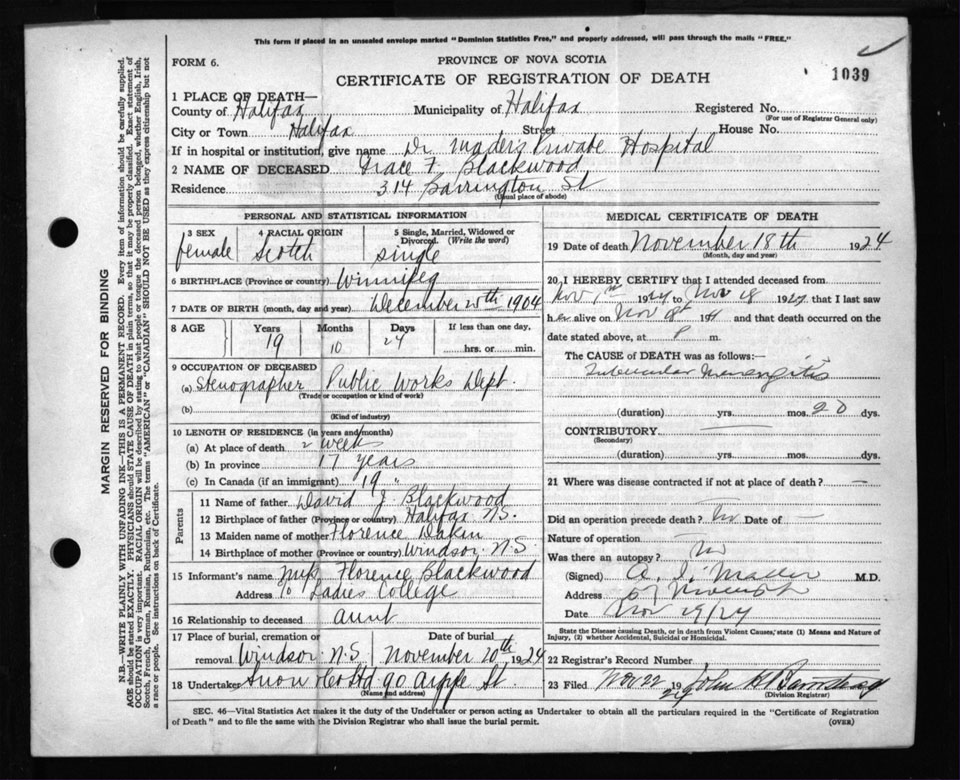 This form if placed in an unsealed envelope marked "Dominion Statistics Free," and properly addressed, will pass through the mails "FREE."
FORM 6.
PROVINCE OF NOVA SCOTIA
CERTIFICATE OF REGISTRATION OF DEATH
1039
1 PLACE OF DEATH—
County of Halifax Municipality of Halifax Registered No.
(For use of Registrar General only)
City or Town Halifax Street House No.
If in hospital or institution, give name Dr. Mader's Private Hospital
2 NAME OF DECEASED Grace F. Blackwood
Residence 314 Barrington St
(Usual place of abode)
MARGIN RESERVED FOR BINDING
N.B.—WRITE PLAINLY WITH UNFADING INK—THIS IS A PERMANENT RECORD. Every item of information should be carefully supplied.
AGE should be stated EXACTLY. PHYSICIANS should STATE CAUSE OF DEATH in plain terms, so that it may be properly classified. Exact statement of
OCCUPATION is very important. RACIAL ORIGIN will be described by stating to what people or tongue the deceased person belonged, whether English, Irish,
Scotch, French, German, Russian, Ruthenian, etc. The terms "AMERICAN" or "CANADIAN" SHOULD NOT BE USED as they express citizenship but not
a race or people. See instructions on back of Certificate.
PERSONAL AND STATISTICAL INFORMATION
3 SEX
female
4 RACIAL ORIGIN
Scotch
5 Single, Married, Widowed or
Divorced. (Write the word)
single
6 BIRTHPLACE (Province or country) Winnipeg
7 DATE OF BIRTH (month, day and year) December 20th 1904
8 AGE Years Months Days If less than one day,
19 10 24 hrs. or min.
9 OCCUPATION OF DECEASED
(a) Stenographer Public Works Dept.
(Trade or occupation or kind of work)
(b)
(Kind of industry)
10 LENGTH OF RESIDENCE (in years and months)
(a) At place of death 2 weeks
(b) In province 17 years
(c) In Canada (if an immigrant) 19 "
Parents
11 Name of father David J. Blackwood
12 Birthplace of father (Province or country) Halifax N.S.
13 Maiden name of mother Florence Dakin
14 Birthplace of mother (Province or country) Windsor N.S
15 Informant's name Florence Blackwood
Address Ladies College
16 Relationship to deceased aunt
17 Place of burial, cremation or
removal Windsor N.S.
Date of burial
November 20th 1924
18 Undertaker Snow & Co Ltd 90 Argyle St.
(Name and address)
MEDICAL CERTIFICATE OF DEATH
19 Date of death November 18th 1924
(Month, day and year)
20 I HEREBY CERTIFY that I attended deceased from
Nov 1924 to Nov 18 1924, that I last saw
her alive on Nov and that death occurred on the
date stated above, at P m.
The CAUSE of DEATH was as follows:—
Tubercular Meningitis
(duration) yrs. mos. 20 dys.
CONTRIBUTORY —
(Secondary)
(duration) yrs. mos. dys.
21 Where was disease contracted if not at place of death? —
Did an operation precede death? No Date of —
Nature of operation
Was there an autopsy? No
(Signed) A. I. Mader M.D.
Address
Date Nov 19/24
State the Disease causing Death, or in death from Violent Causes, state (1) Means and Nature of
Injury, (2) whether Accidental, Suicidal or Homicidal.
22 Registrar's Record Number
23 Filed Nov 22 19 24 John H.
(Division Registrar)
SEC. 46—Vital Statistics Act makes it the duty of the Undertaker or person acting as Undertaker to obtain all the particulars required in the "Certificate of Registration
of Death" and to file the same with the Division Registrar who shall issue the burial permit.
(OVER)